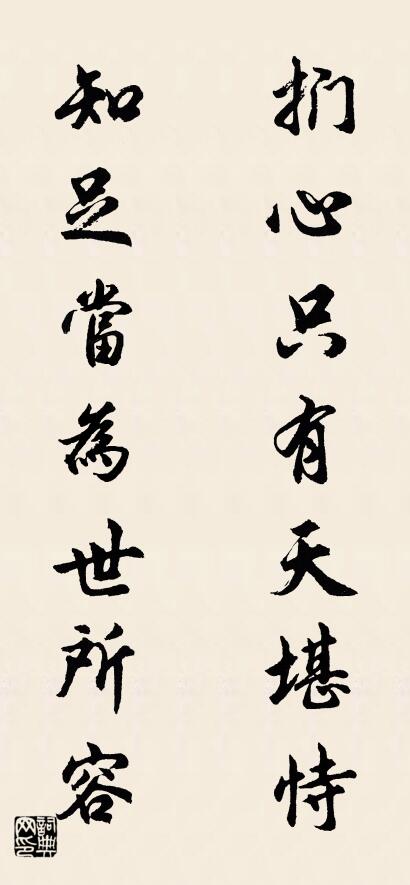 捫心只有天堪恃
知足當為世所容
詞典
网印